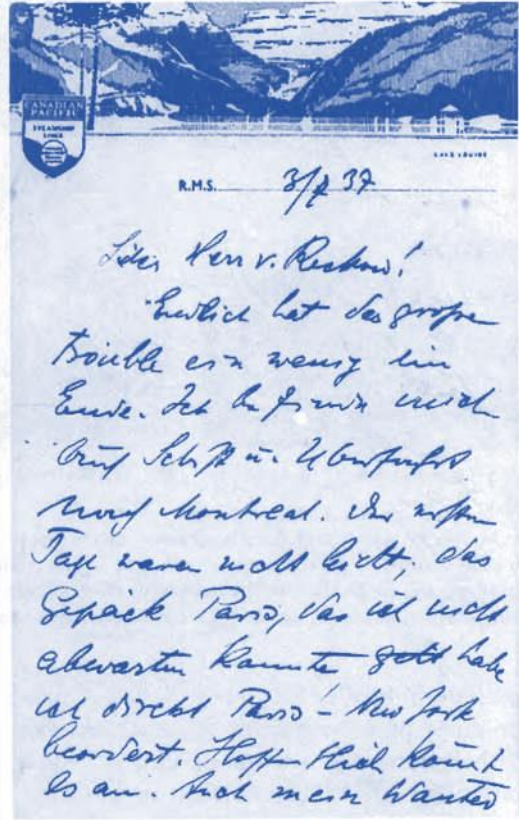 CANADIAN
PACIFIC
STEAMSHIP
LINES
LAKE LOUISE
R.M.S. 3/7 37
Lieber Herr v. Reckow!
Endlich hat das große
trouble ein wenig ein
Ende. Ich befinde mich
auf Schiff u. Überfahrt
nach Montreal. Die ersten
Tage waren nicht leicht, das
Gepäck Paris, das ich nicht
abwarten konnte habe
ich direkt Paris – New York
beordert. Hoffentlich kommt
es an. Auch mein